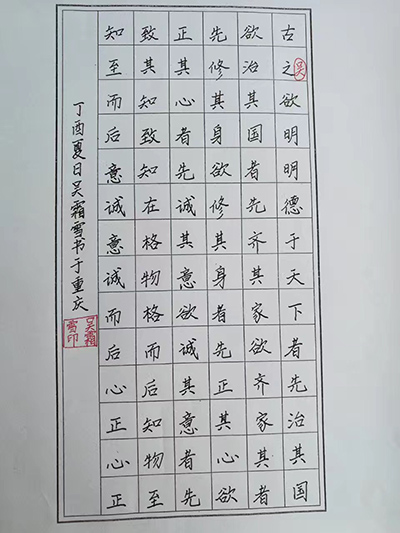 古之欲明明德于天下者先治其国
欲治其国者先齐其家欲齐家其者
先修其身欲修其身者先正其心欲
正其心者先诚其意欲诚其意者先
致其知致知在格物格而后知物至
知至而后意诚意诚而后心正心正
丁酉夏日吴霜雪书于重庆
吴
吴霜
雪印